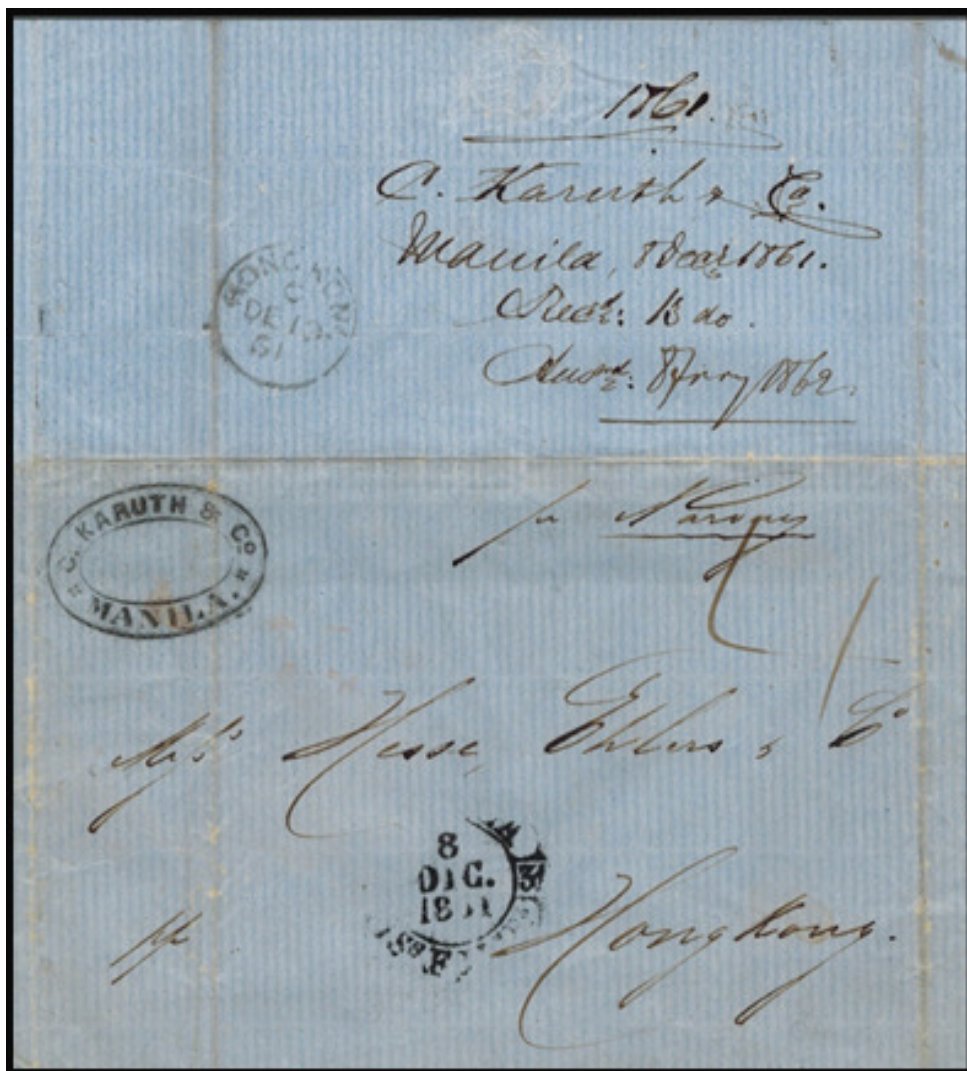 1861.
C. Karuth & Co.
Manila, 8 Decr 1861.
Recd: 13 do.
Answd: 8 Jany 1862.
HONG KONG
C
DE 13
61
C. KARUTH & Co
MANILA.
pr
Mess Hesse, Ehlers & Co
8
DIC.
1861
Hongkong.